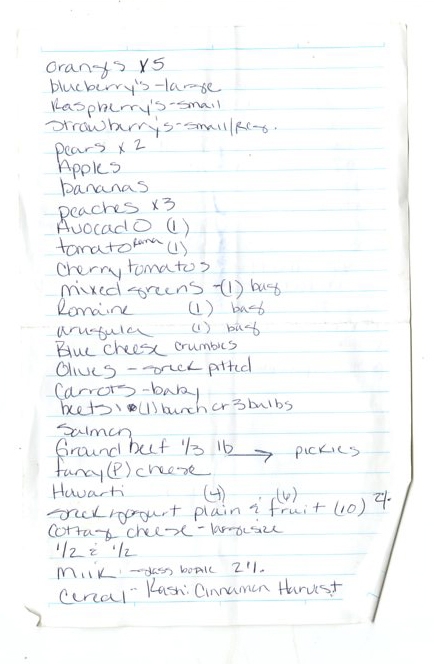 oranges x5
blueberry's-large
Raspberry's-small
Strawberry's-small/Reg.
pears x 2
Apples
bananas
peaches x3
Avocado (1)
tomato Roma (1)
Cherry tomatos
mixed greens -(1) bag
Romaine (1) bag
arugula (1) bag
Blue cheese crumbles
Olives - greek pitted
Carrots - baby
beets (1) bunch or 3 bulbs
Salmon
Ground beef 1/3 lb → pickles
fancy (P) cheese
Havarti (4) (6)
greek yogurt plain & fruit (10) 2%
Cottage cheese - large size
1/2 & 1/2
Milk - glass bottle 2%
Cereal - Kashi Cinnamon Harvest